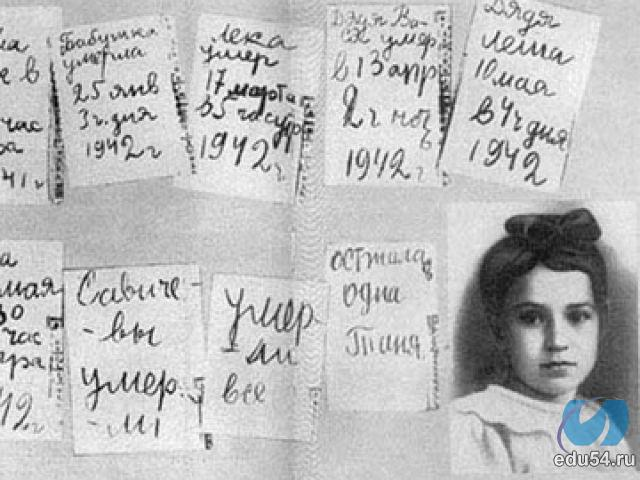 е в
час
ра
41 г
Бабушка
умерла
25 янв
3 ч. дня
1942 г
Лека
умер
17 марта
в 5 час утр
1942 г
Дядя Ва-
ся умер
в 13 апр
2 ч ноч
1942 г
Дядя
Леша
10 мая
в 4 ч дня
1942
мая
30
час
тра
42 г
Савиче-
-вы
умер
-ли
умер
-ли
все
осталась
одна
Таня
edu54.ru